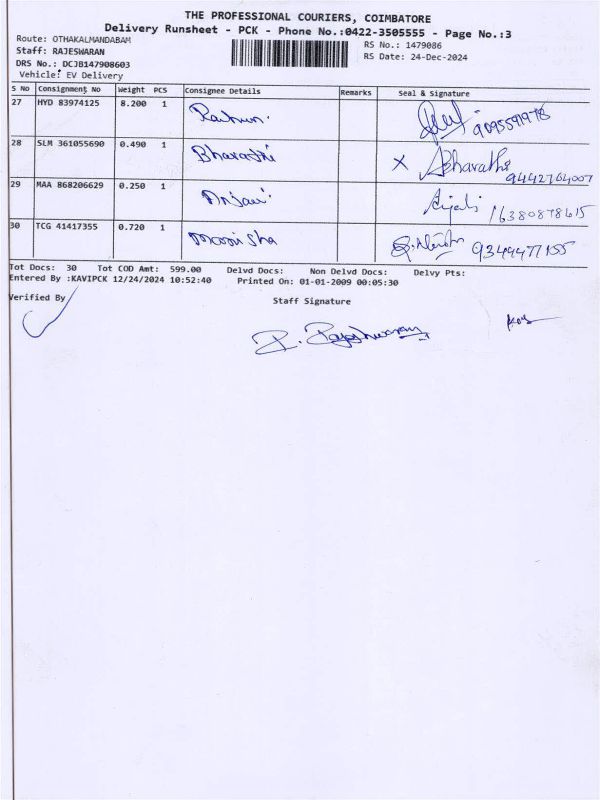 THE PROFESSIONAL COURIERS, COIMBATORE
Delivery Runsheet - PCK - Phone No.:0422-3505555 - Page No.:3
Route: OTHAKALMANDABAM
RS No.: 1479086
Staff: RAJESWARAN
RS Date: 24-Dec-2024
DRS No.: DCJB147908603
Vehicle: EV Delivery
S No Consignment No Weight PCS Consignee Details Remarks Seal & Signature
27 HYD 83974125 8.200 1
28 SLM 361055690 0.490 1 Bharathi X Bharathi 9442764007
29 MAA 868206629 0.250 1 Anjali
30 TCG 41417355 0.720 1 Monisha 9344477155
Tot Docs: 30 Tot COD Amt: 599.00 Delvd Docs: Non Delvd Docs: Delvy Pts:
Entered By :KAVIPCK 12/24/2024 10:52:40 Printed On: 01-01-2009 00:05:30
Verified By
Staff Signature
R. Rajeshwaran